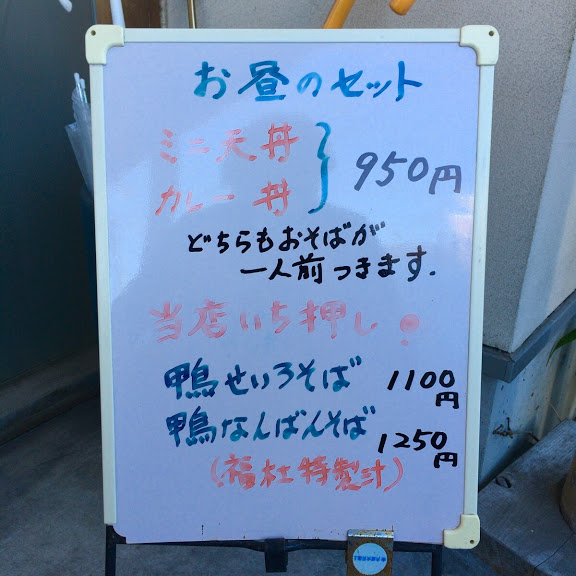 お昼のセット
ミニ天丼
カレー丼
950円
どちらもおそばが
一人前つきます.
当店いち押し!
鴨せいろそば 1100円
鴨なんばんそば 1250円
(福杜特製汁)